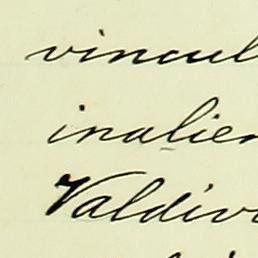 vincul
inalien
Valdivi